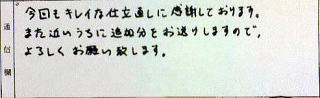 通信欄
今回もキレイな仕立直しに感謝しております。
また近いうちに追加分をお送りしますので、
よろしくお願い致します。